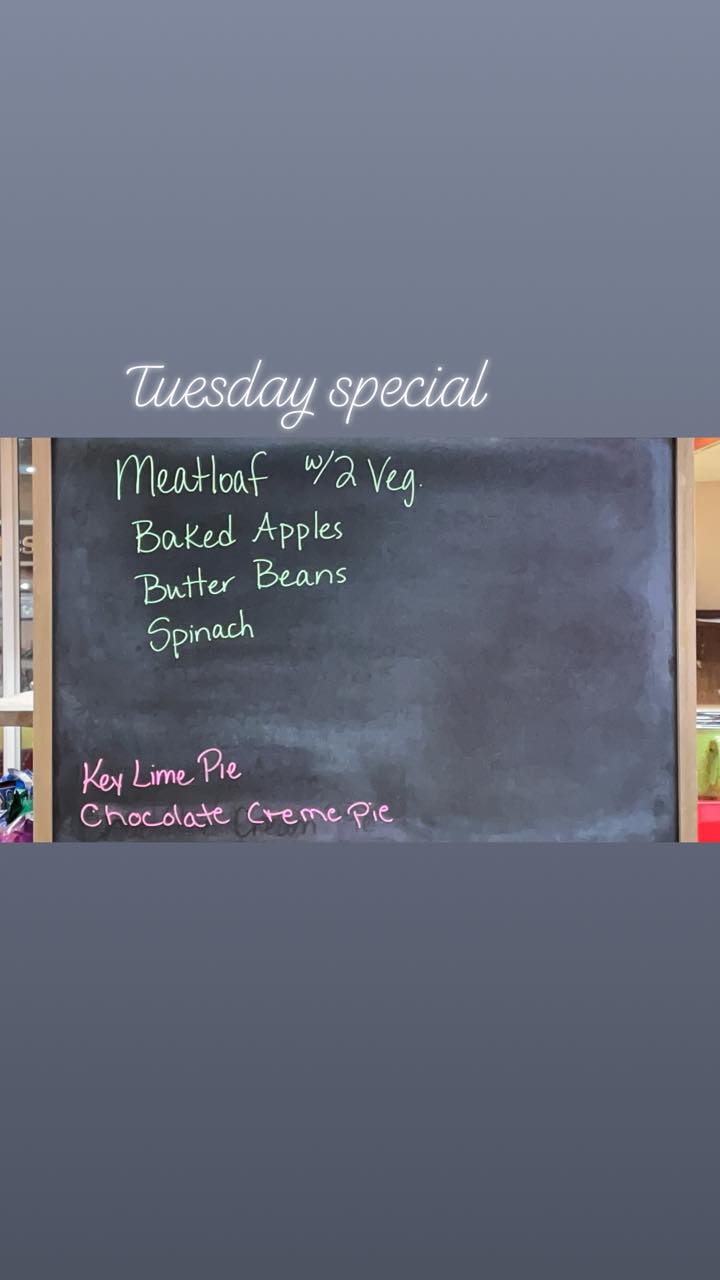 Tuesday special
Meatloaf w/2 Veg.
Baked Apples
Butter Beans
Spinach
Key Lime Pie
Chocolate Creme Pie